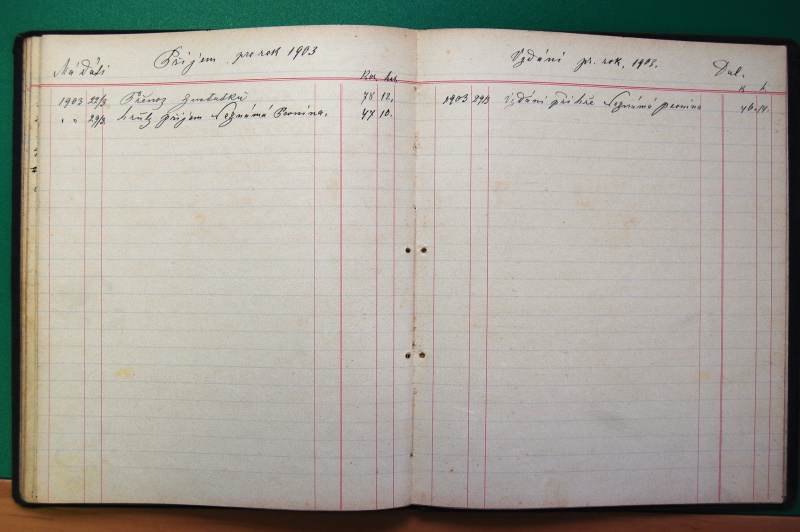 Má dáti Příjem pro rok 1903
Kor. hal.
1903 22/3 Přenos zůstatků 78 12.
" " 29/3 hrubý příjem Neznámá Pevnina. 47 10.
Vydání pr. rok. 1903. Dal.
K h
1903 29/3 Vydání při hře Neznámá pevnina